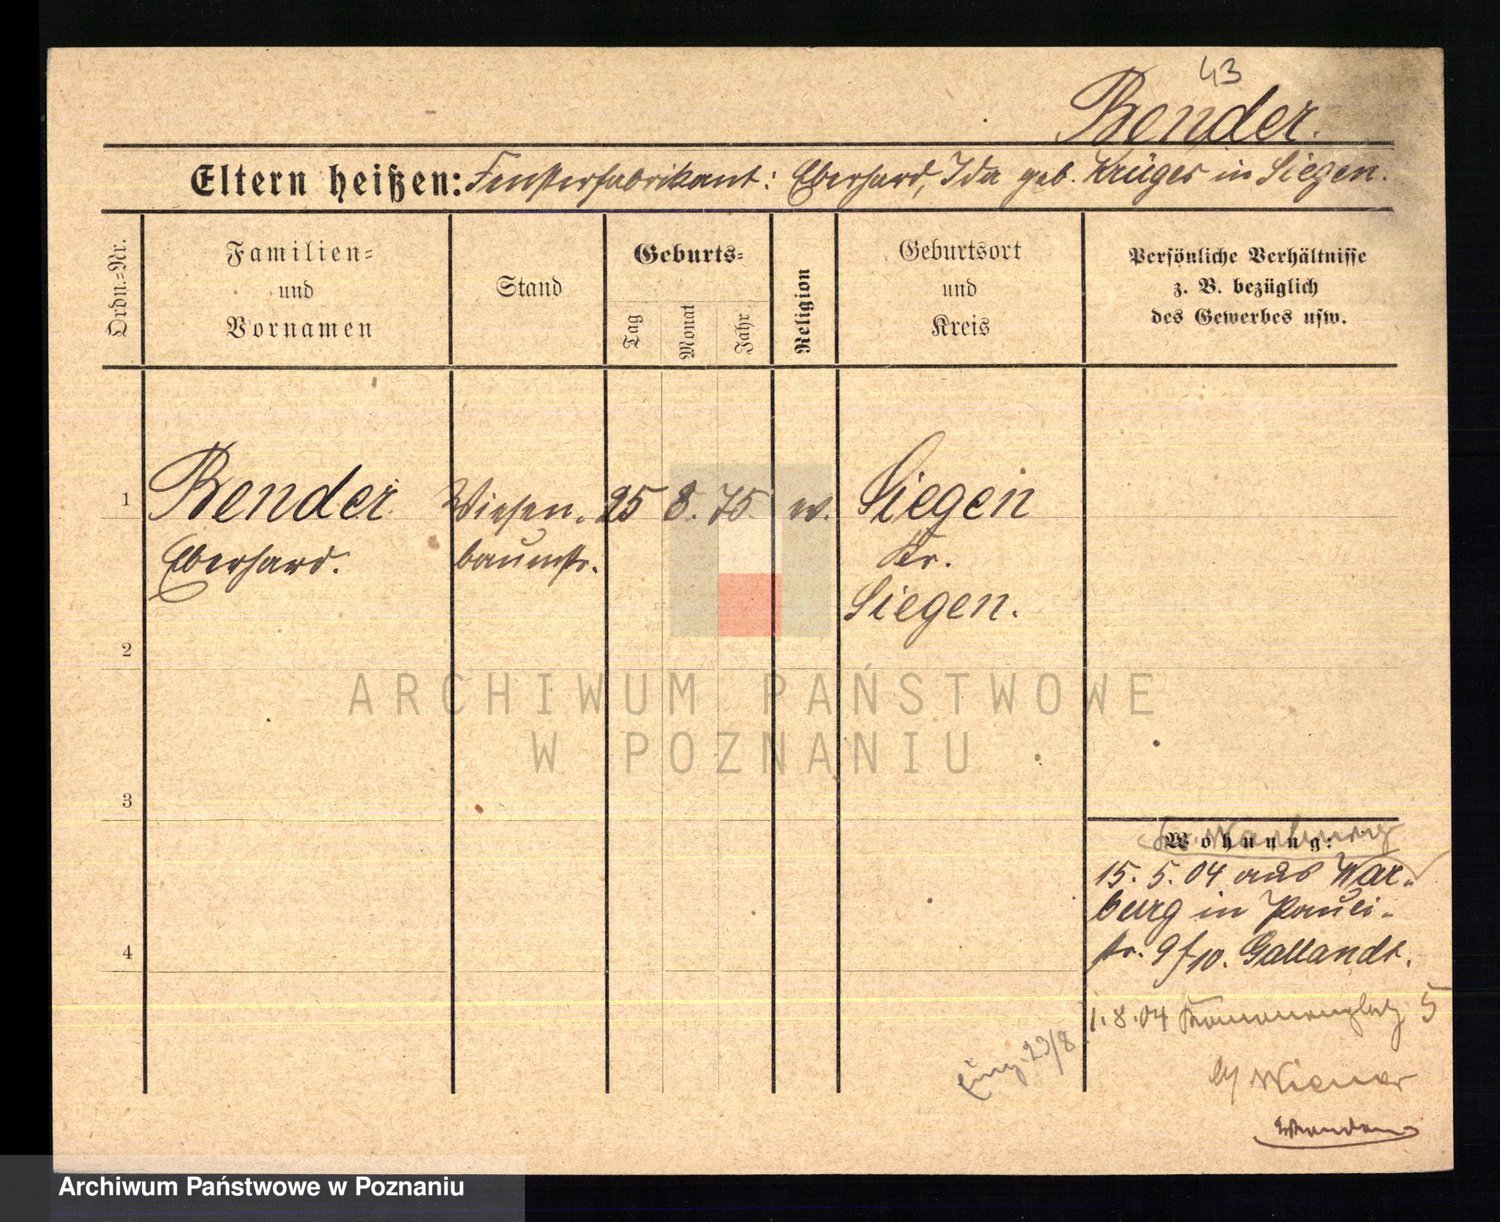 43
Bender.
Eltern heißen: Fensterfabrikant: Eberhard, Ida geb. Krüger in Siegen.
Ordn.=Nr.
Familien=
und
Vornamen
Stand
Geburts=
Tag
Monat
Jahr
Religion
Geburtsort
und
Kreis
Persönliche Verhältnisse
z. B. bezüglich
des Gewerbes usw.
1 Bender Wiesen- 25 8. 75. ev. Siegen
Eberhard. baumstr. Kr.
Siegen.
2
ARCHIWUM PAŃSTWOWE
W POZNANIU
3
Wohnung:
15. 5. 04 aus War-
burg in Pauli-
str. 9/10. Gallandt.
4
1.8.04 5
23/8
by Wiener
Archiwum Państwowe w Poznaniu